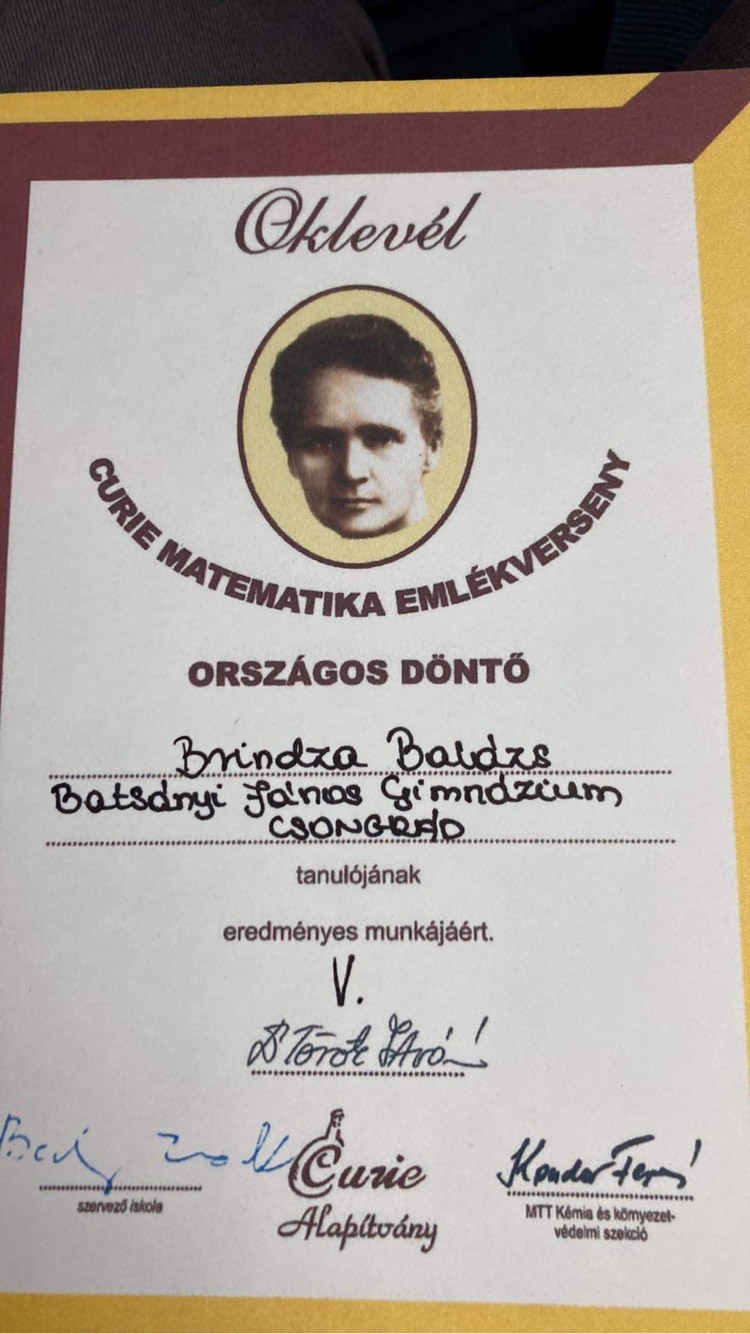 Oklevél
CURIE MATEMATIKA EMLÉKVERSENY
ORSZÁGOS DÖNTŐ
Brindza Balázs
Batsányi János Gimnázium
CSONGRÁD
tanulójának
eredményes munkájáért.
V.
Dr Török István
Curie
Alapítvány
szervező iskola
MTT Kémia és környezet-
védelmi szekció